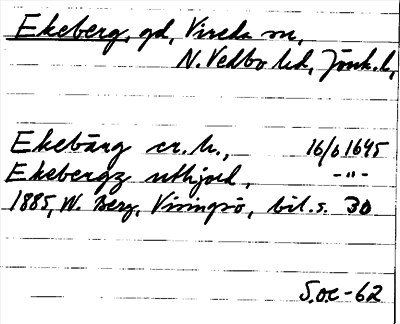 Ekeberg, gd, Vireda sn,
N. Vedbo hd, Jönk. l,
Ekebärg cr. h., 16/6 1645
Ekebergz uthjord, -"-
1885, W. Berg, Visingsö, bil. s. 30
S.O.C-62